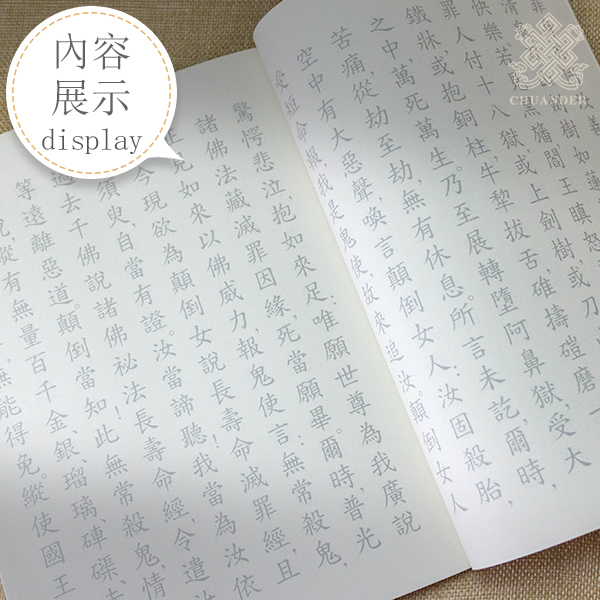 內容
展示
display
CHUANDEP
樹,如蓮
閻王瞋怒
罪人付十八獄,或上劍樹,或刀
鐵牀或抱銅柱,牛犁拔舌,碓擣磑磨,一
之中,萬死萬生。乃至展轉墮阿鼻獄,受大
苦痛,從劫至劫,無有休息。所言未訖,爾時,
空中有大惡聲,喚言顛倒女人:汝固殺胎,
受短命報,我是鬼使,故來追汝。顛倒女人
驚愕悲泣,抱如來足:唯願世尊為我廣說
諸佛法藏滅罪因緣,死當願畢。爾時,普光
正見如來以佛威力,報鬼使言:無常殺鬼,
今現欲為顛倒女說長壽命滅罪經,且
須臾,自當有證。汝當諦聽!我當為汝依
過去千佛說諸佛祕法長壽命經,令遣汝
等遠離惡道。顛倒當知!此無常殺鬼,情
縱有無量百千金、銀、瑠璃、硨磲、赤
無能得免。縱使國王